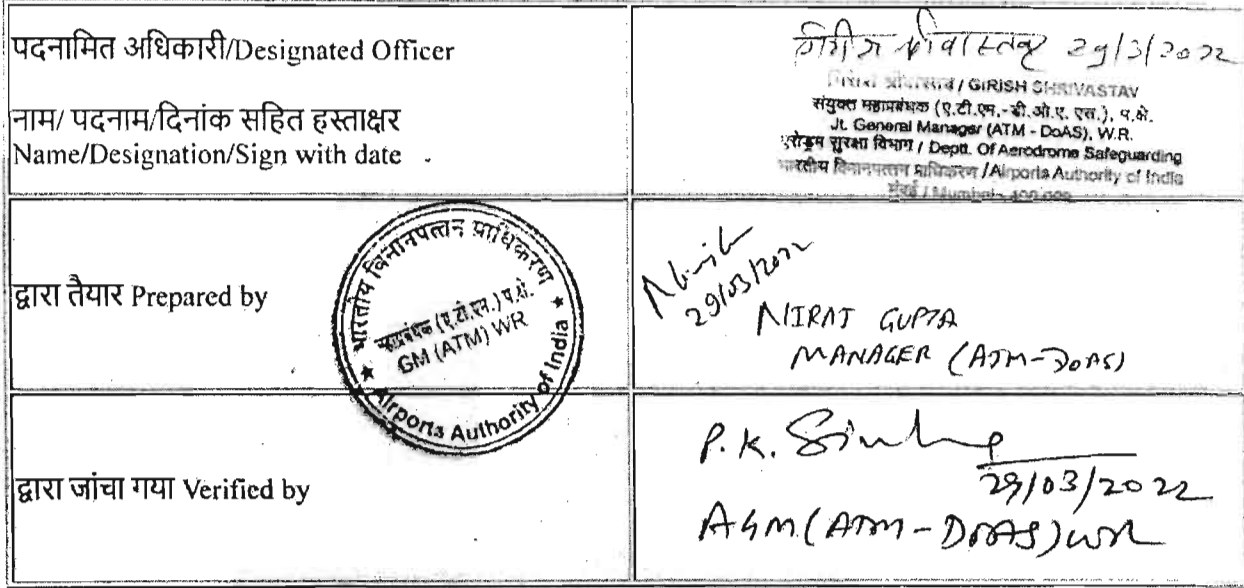 पदनामित अधिकारी/Designated Officer
नाम/ पदनाम/दिनांक सहित हस्ताक्षर
Name/Designation/Sign with date
गिरीश श्रीवास्तव 29/3/2022
गिरीश श्रीवास्तव / GIRISH SHRIVASTAV
संयुक्त महाप्रबंधक (ए.टी.एम.-डी.ओ.ए. एस.), प.क्षे.
Jt. General Manager (ATM - DoAS), W.R.
एरोड्रम सुरक्षा विभाग / Deptt. Of Aerodrome Safeguarding
भारतीय विमानपत्तन प्राधिकरण / Airports Authority of India
मुंबई / Mumbai - 400 099
द्वारा तैयार Prepared by
भारतीय विमानपत्तन प्राधिकरण
महाप्रबंधक (ए.टी.एम.) प.क्षे.
GM (ATM) WR
Airports Authority of India
29/03/2022
NIRAJ GUPTA
MANAGER (ATM-DoAS)
द्वारा जांचा गया Verified by
P.K. Sinha
29/03/2022
AGM (ATM-DOAS) WR